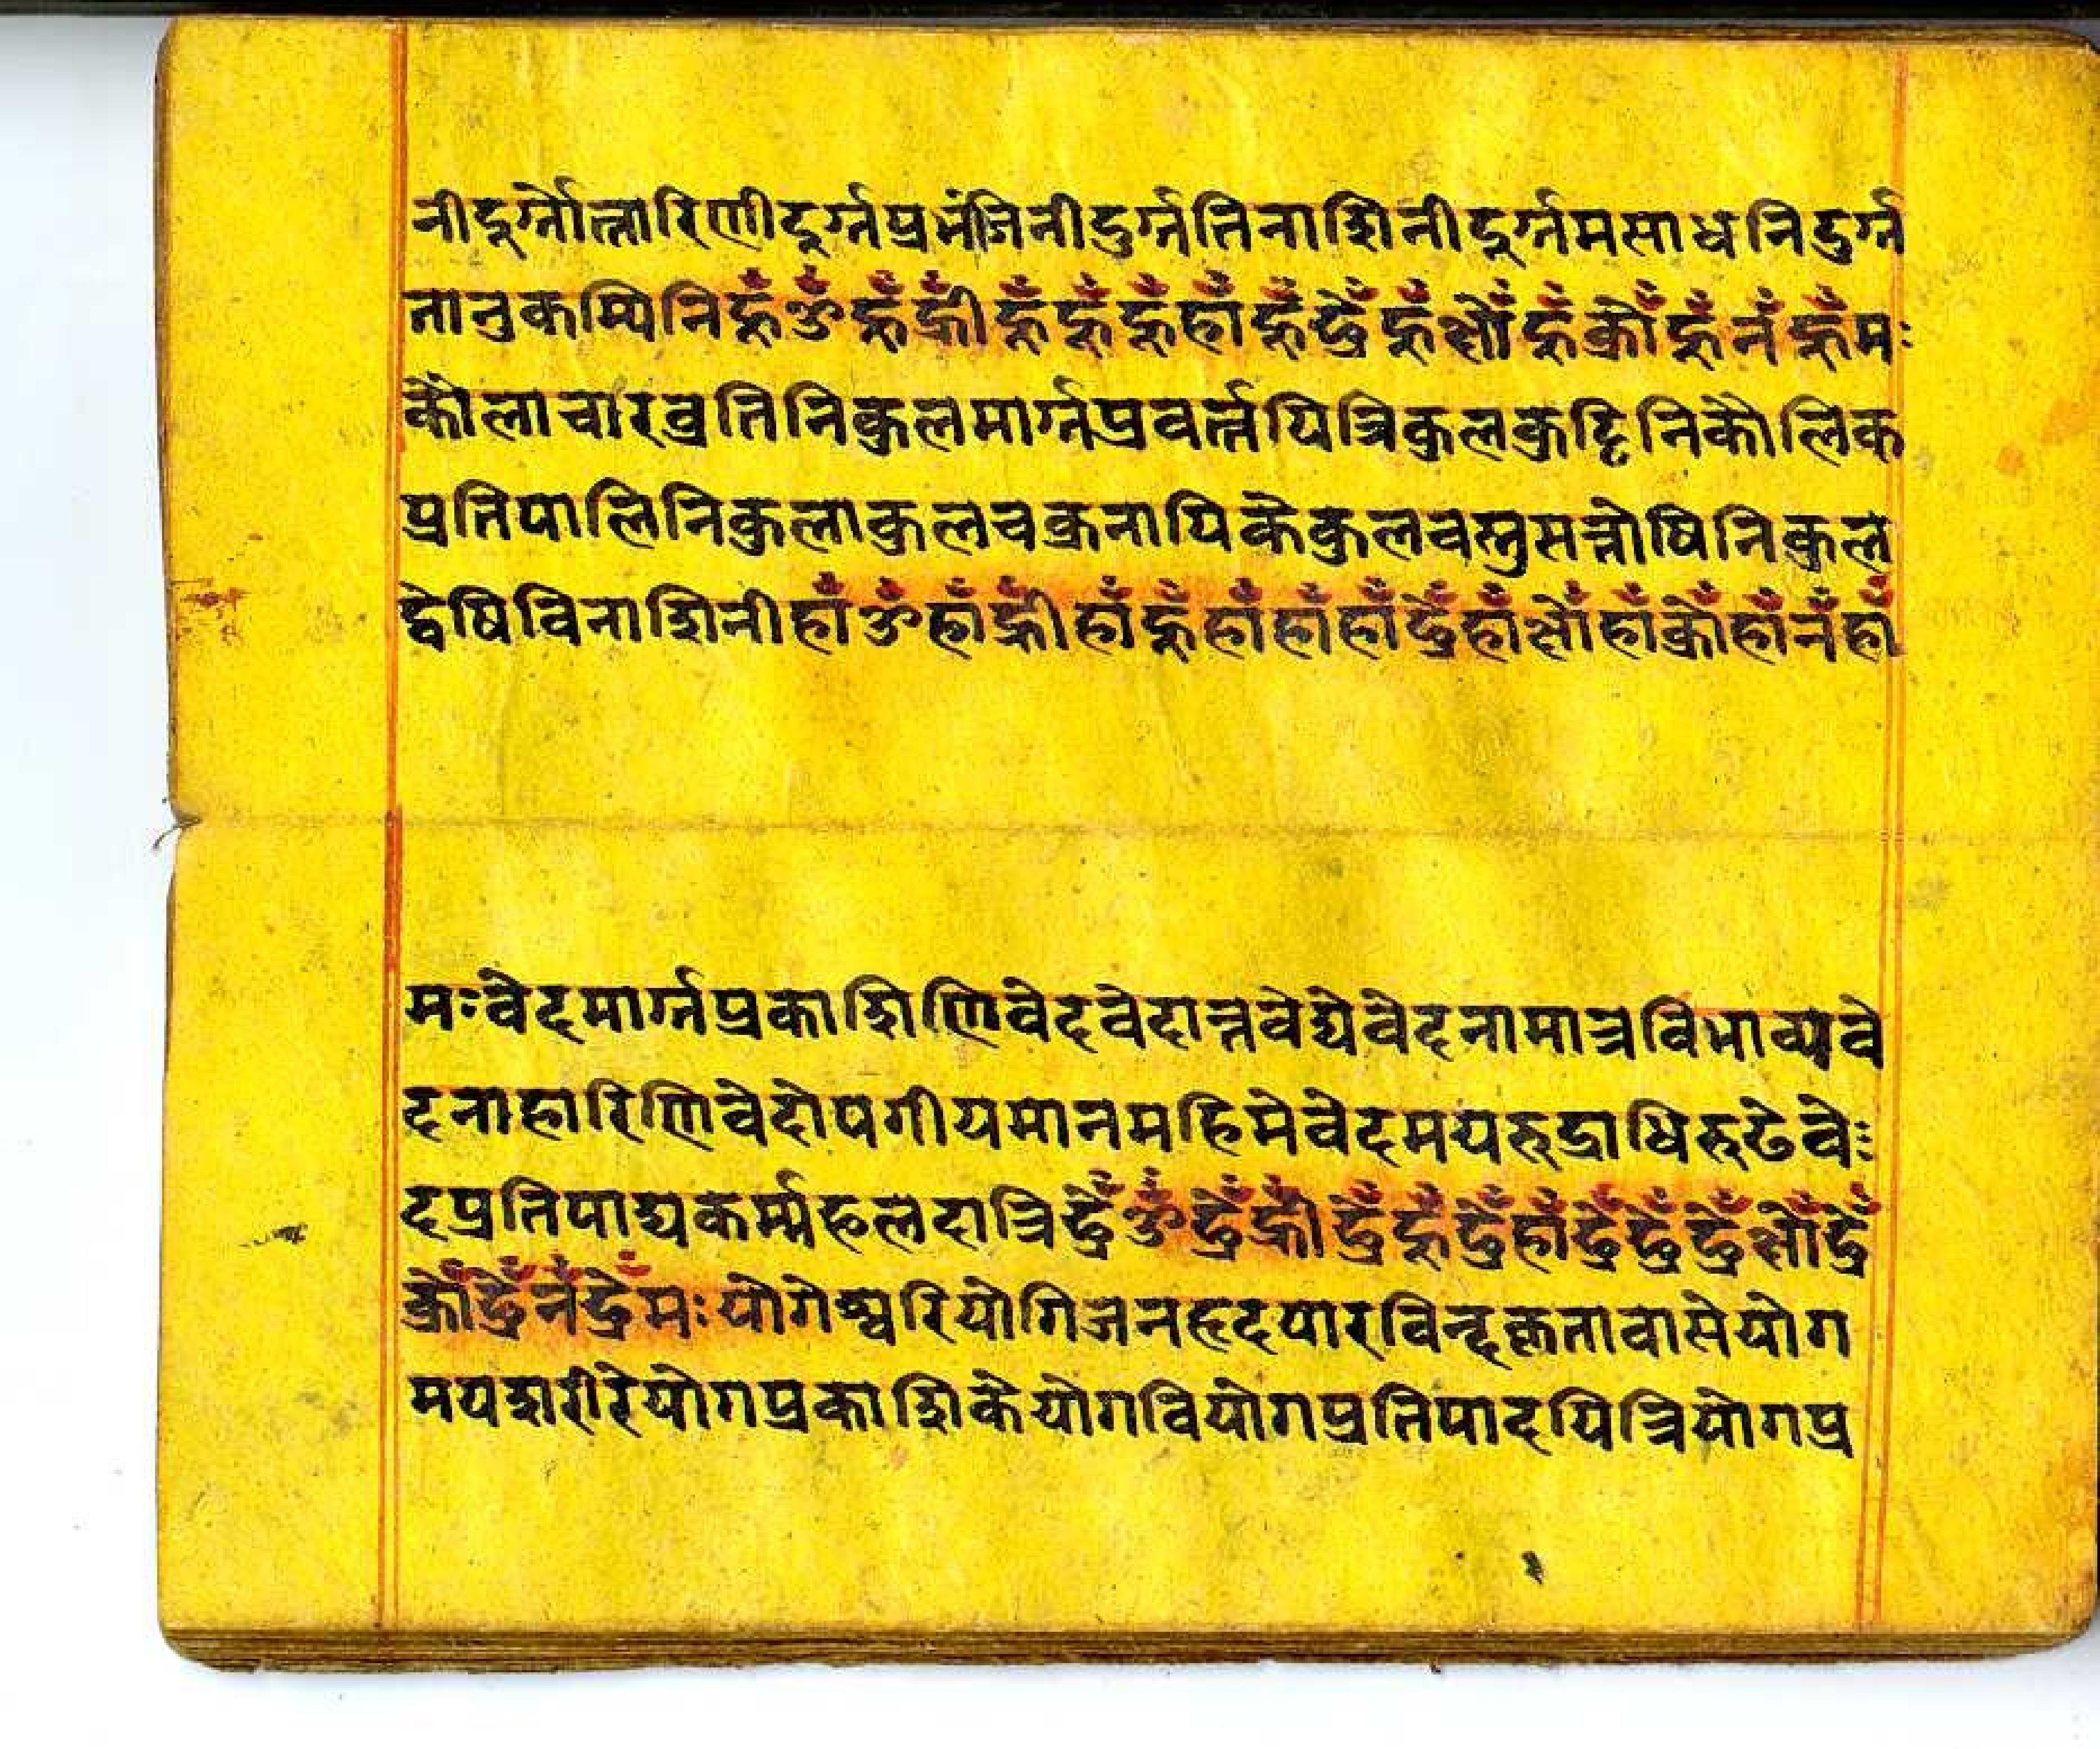 नीदूर्ग्गोत्तारिणीदूर्ग्गप्रभंजिनीदुर्ग्गतिनाशिनीदूर्ग्गमसाधनिदुर्ग्ग
तानुकम्पिनिह्रूँॐह्रूँह्रीँह्रूँह्रूँह्रूँह्राँह्रूँ ह्रूँ क्रोँह्रूँनँह्रूँमः
कौलाचारव्रतिनिकुलमार्ग्गप्रवर्त्तयित्रिकुलक्रद्दिनिकौलिक
प्रतिपालिनिकुलाकुलचक्रनायिकेकुलवस्तुसन्तोषिनिकुल
द्वेषिविनाशिनीह्राँॐह्राँह्रीँह्राँह्रूँह्राँह्राँह्राँ ह्राँ ह्राँक्रोँह्राँनँह्राँ
मःवेदमार्ग्गप्रकाशिणिवेदवेदान्तवेद्येवेदनामात्रविभाव्यवे
दनाहारिणिवेदोपगीयमानमहिमेवेदमयरुद्राधिरुढेवेः
दप्रतिपाद्यकर्म्मफलदात्रिद्रेँॐद्रेँह्रीँद्रेँह्रूँद्रेँह्राँद्रेँद्रेँद्रेँ द्रेँ
क्रोँद्रेँनँद्रेँमःयोगेश्वरियोगिजनहृदयारविन्दकृतावासेयोग
मयशरीरेयोगप्रकाशिकेयोगवियोगप्रतिपादयित्रियोगप्र